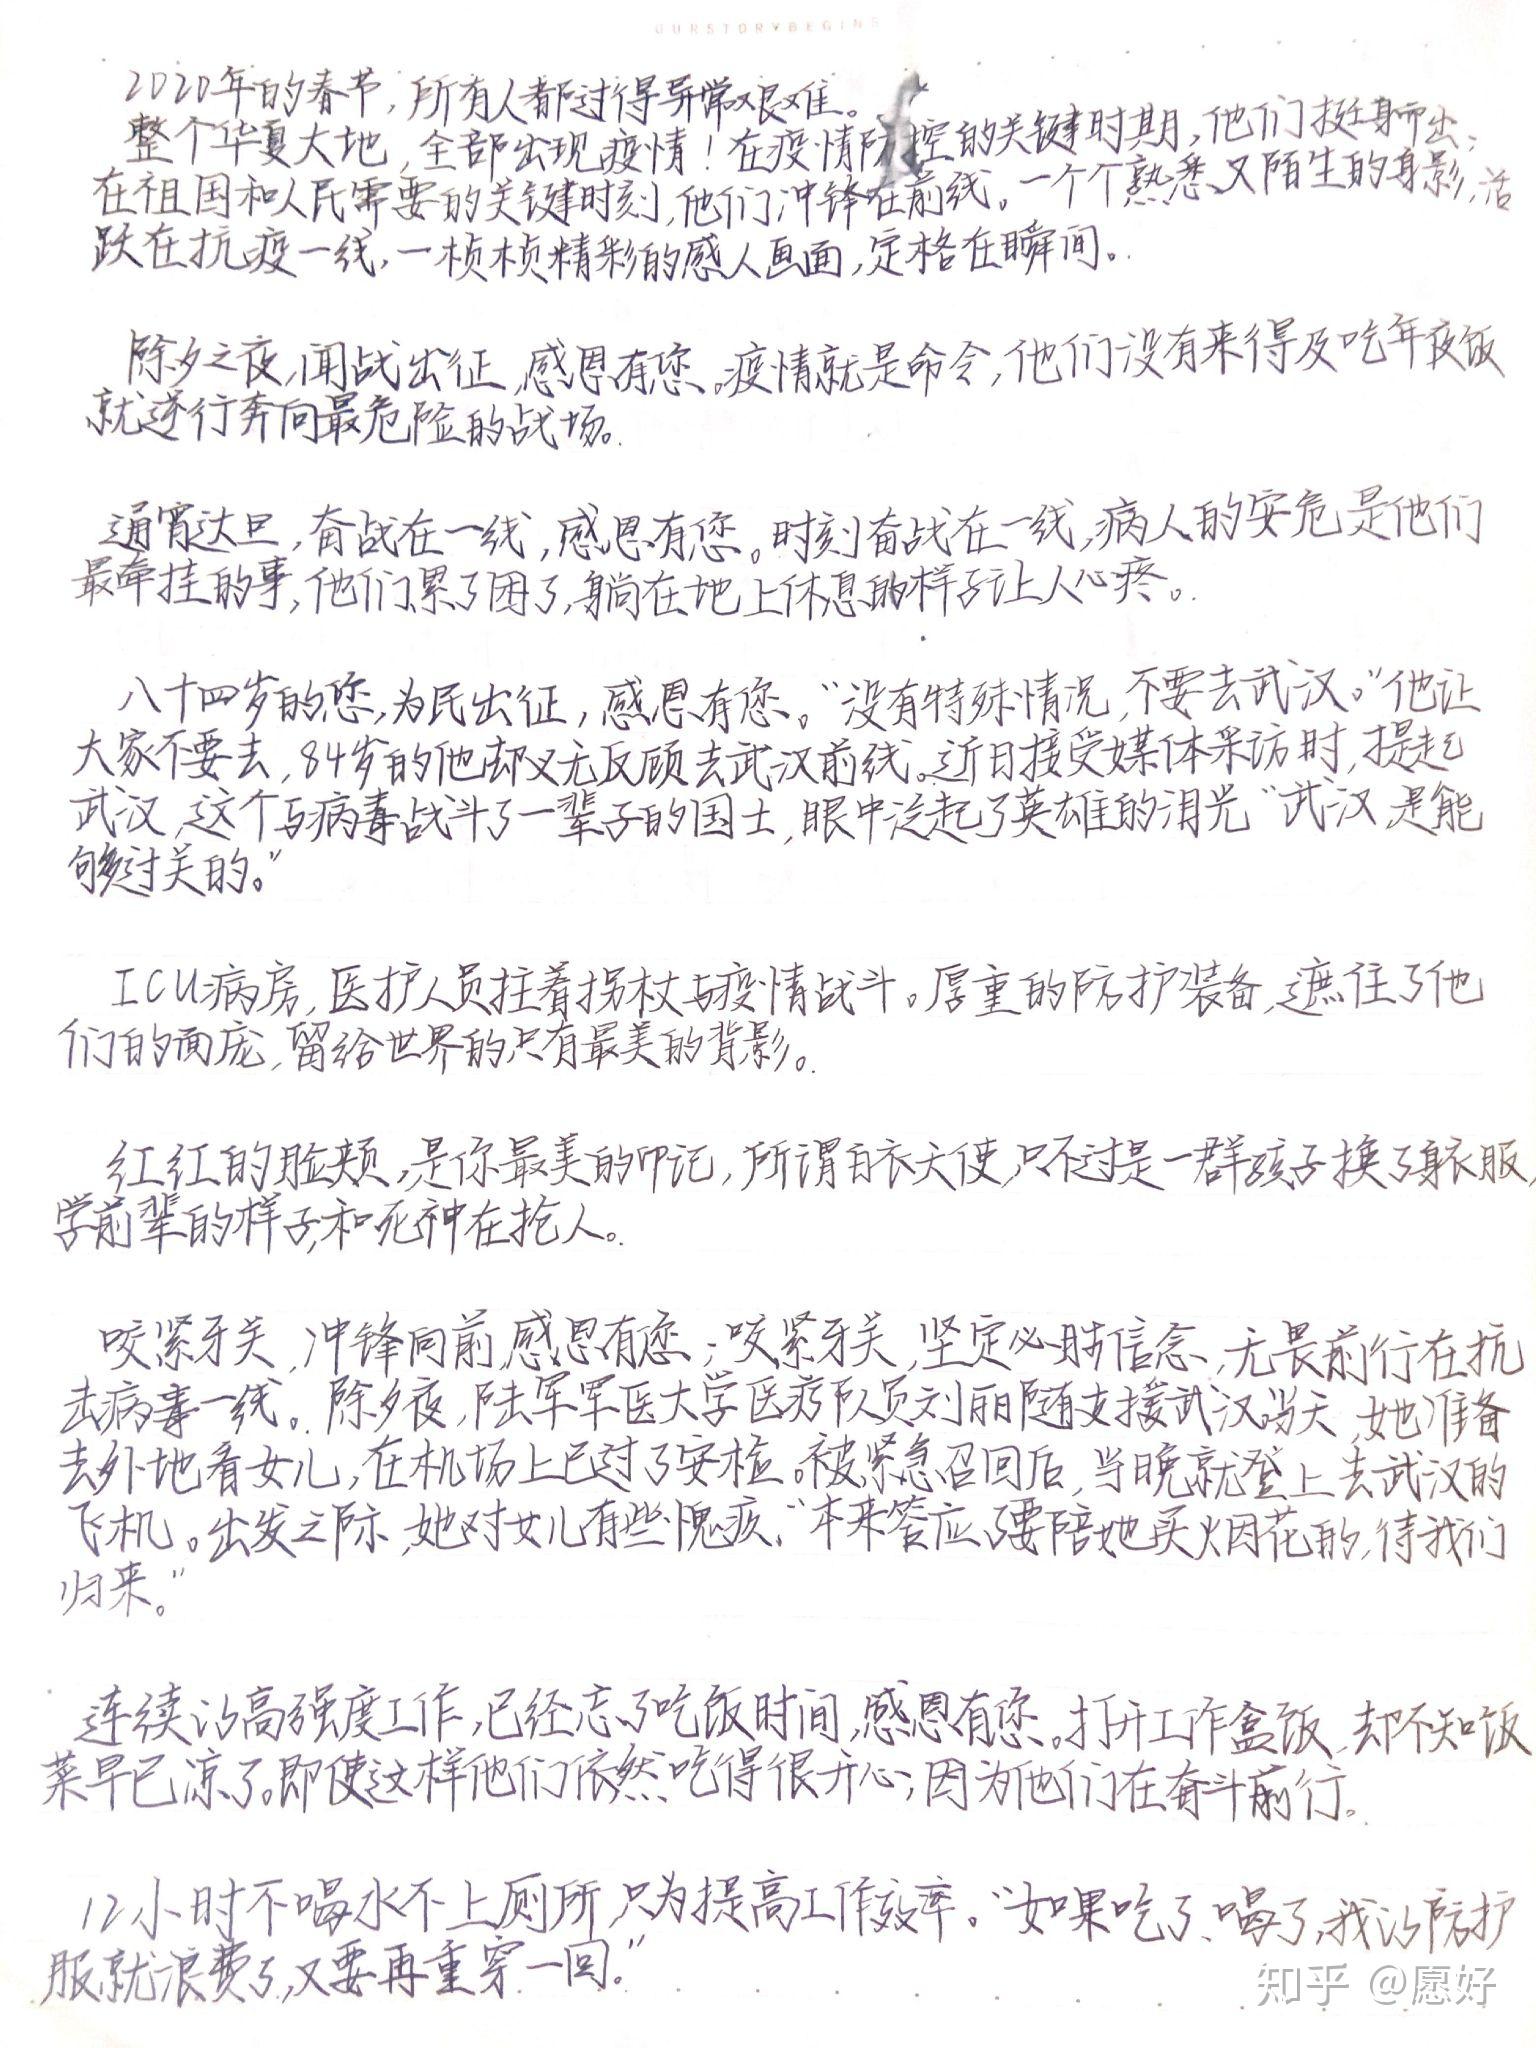 OURSTORYBEGINS
2020年的春节，所有人都过得异常艰难。
整个华夏大地，全部出现疫情！在疫情防控的关键时期，他们挺身而出；
在祖国和人民需要的关键时刻，他们冲锋在前线。一个个熟悉又陌生的身影，活
跃在抗疫一线，一桢桢精彩的感人画面，定格在瞬间。
除夕之夜，闻战出征，感恩有您。疫情就是命令，他们没有来得及吃年夜饭
就逆行奔向最危险的战场。
通宵达旦，奋战在一线，感恩有您。时刻奋战在一线，病人的安危是他们
最牵挂的事，他们累了困了，躺在地上休息的样子让人心疼。
八十四岁的您，为民出征，感恩有您。“没有特殊情况，不要去武汉。”他让
大家不要去，84岁的他却义无反顾去武汉前线。近日接受媒体采访时，提起
武汉，这个与病毒战斗了一辈子的国士，眼中泛起了英雄的泪光“武汉，是能
够过关的。”
ICU病房，医护人员拄着拐杖与疫情战斗。厚重的防护装备，遮住了他
们的面庞，留给世界的只有最美的背影。
红红的脸颊，是你最美的印记，所谓白衣天使，只不过是一群孩子换了身衣服，
学前辈的样子，和死神在抢人。
咬紧牙关，冲锋向前，感恩有您；咬紧牙关，坚定必胜信念，无畏前行在抗
击病毒一线。除夕夜，陆军军医大学医疗队员刘丽随支援武汉当天，她准备
去外地看女儿，在机场上已过了安检。被紧急召回后，当晚就登上去武汉的
飞机。出发之际，她对女儿有些愧疚，“本来答应了要陪她买烟花的，待我们
归来。”
连续的高强度工作，已经忘了吃饭时间，感恩有您。打开工作盒饭，却不知饭
菜早已凉了。即使这样他们依然吃得很开心；因为他们在奋斗前行。
12小时不喝水不上厕所，只为提高工作效率。“如果吃了、喝了，我的防护
服就浪费了，又要再重穿一回。”
知乎 @愿好